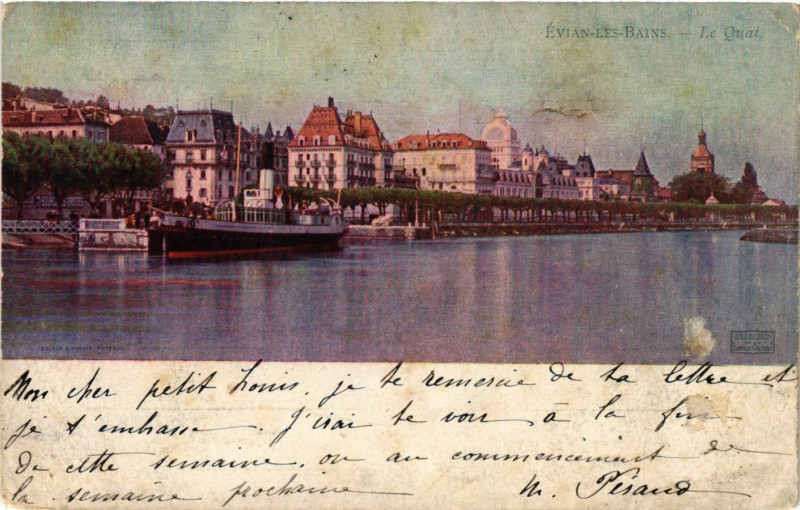 ÉVIAN-LES-BAINS. — Le Quai.
COLLECTION
Mon cher petit Louis, je te remercie de ta lettre et
je t'embrasse. J'irai te voir à la fin
de cette semaine, ou au commencement de
la semaine prochaine M. Péraud